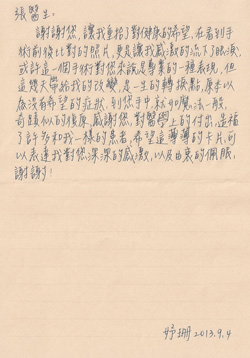 張醫生:
謝謝您,讓我重拾了對健康的希望,在看到手
術前後比對的照片,更是讓我感激的流下了眼淚,
或許這一個手術對您來說是專業的一種表現,但
這想天帶給我的改變,是一生的轉捩點,原本以
為沒有希望的症狀,到您手中就如魔法一般,
奇蹟似的復原,感謝您,對醫學上的付出,造福
了許多和我一樣的患者,希望這薄薄的卡片,可
以表達我對您深深的感激,以及由衷的佩服,
謝謝!
妤珊 2013.9.4